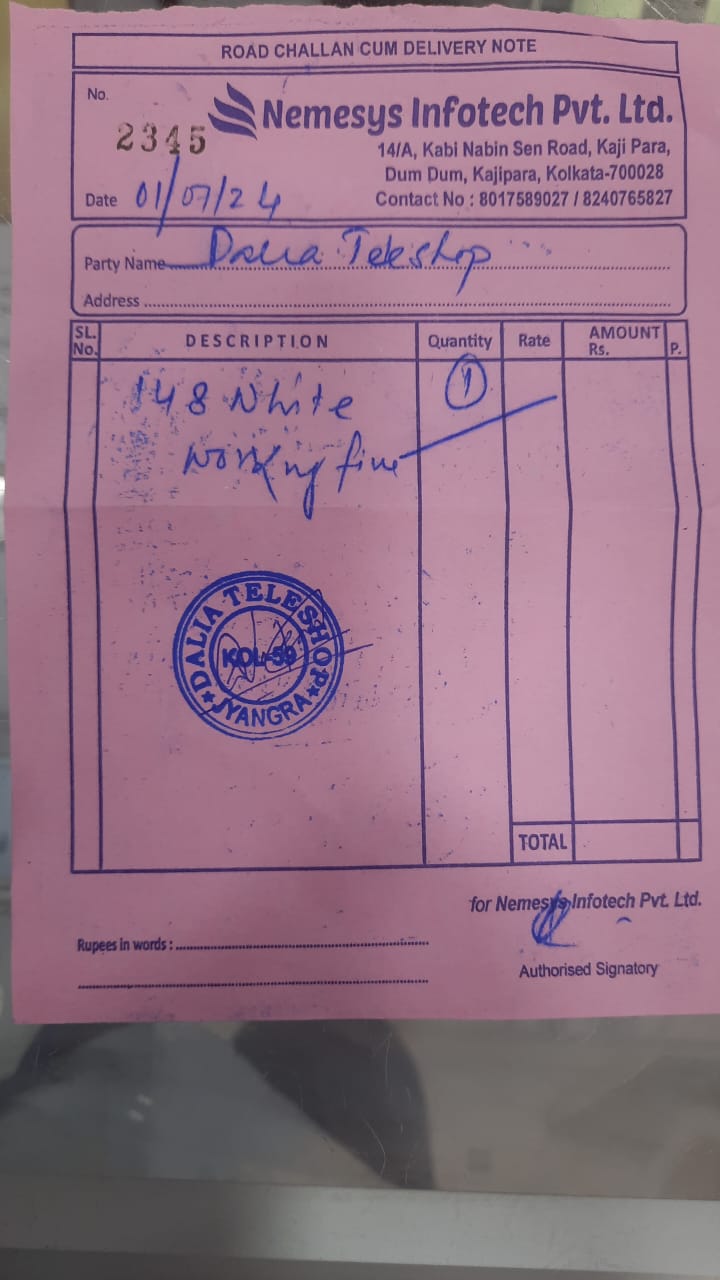 ROAD CHALLAN CUM DELIVERY NOTE
No.
2345
Nemesys Infotech Pvt. Ltd.
14/A, Kabi Nabin Sen Road, Kaji Para,
Dum Dum, Kajipara, Kolkata-700028
Contact No : 8017589027 / 8240765827
Date 01/07/24
Party Name Dalia Teleshop
Address
SL. No. DESCRIPTION Quantity Rate AMOUNT Rs. P.
148 White 1
Working fine
DALIA TELESHOP
KOL-59
JYANGRA
TOTAL
for Nemesys Infotech Pvt. Ltd.
Rupees in words :
Authorised Signatory